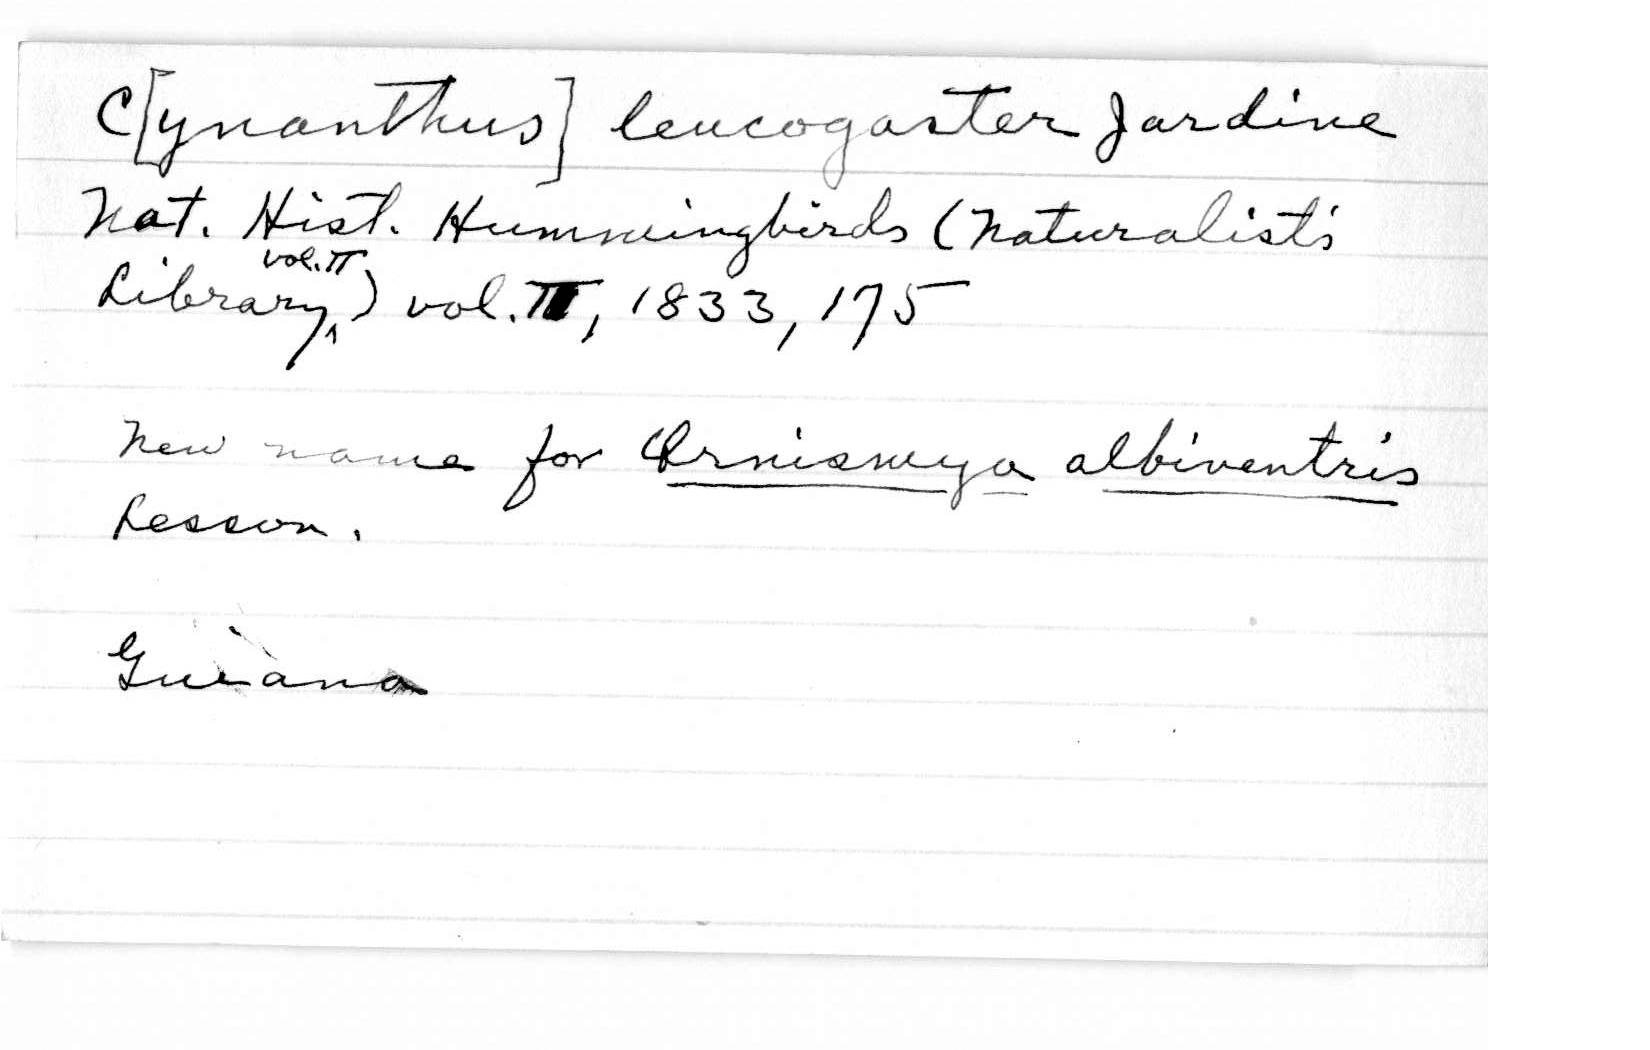 C[ynanthus] leucogaster Jardine
Nat. Hist. Hummingbirds (Naturalist's
Library, vol. II) vol. II, 1833, 175
New name for Ornismya albiventris
Lesson.
Guiana